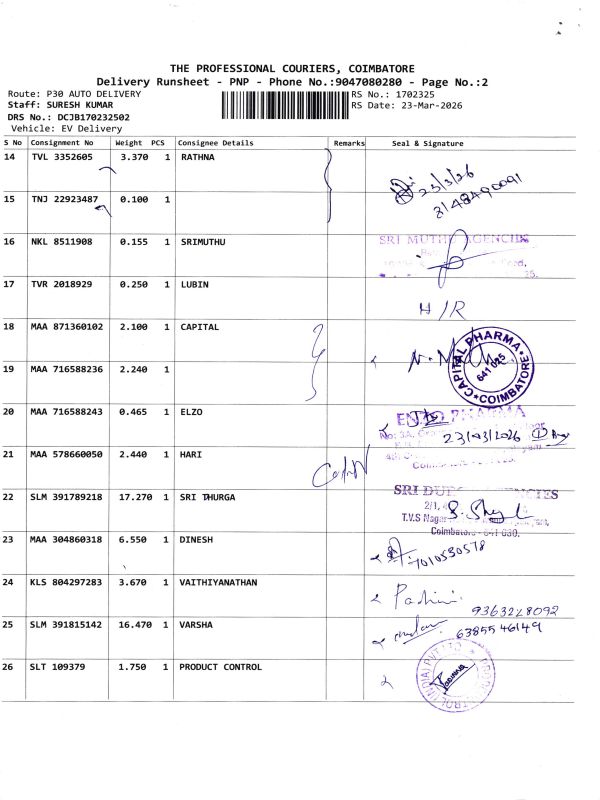 THE PROFESSIONAL COURIERS, COIMBATORE
Delivery Runsheet - PNP - Phone No.:9047080280 - Page No.:2
Route: P30 AUTO DELIVERY
Staff: SURESH KUMAR
DRS No.: DCJB170232502
Vehicle: EV Delivery
RS No.: 1702325
RS Date: 23-Mar-2026
S No Consignment No Weight PCS Consignee Details Remarks Seal & Signature
14 TVL 3352605 3.370 1 RATHNA
23/3/26
8148490091
15 TNJ 22923487 0.100 1
16 NKL 8511908 0.155 1 SRIMUTHU
SRI MUTHU AGENCIES
17 TVR 2018929 0.250 1 LUBIN
H/R
18 MAA 871360102 2.100 1 CAPITAL
CAPITAL PHARMA
641 025
COIMBATORE
19 MAA 716588236 2.240 1
20 MAA 716588243 0.465 1 ELZO
PHARMA
23/03/2026
21 MAA 578660050 2.440 1 HARI
Coimbatore
22 SLM 391789218 17.270 1 SRI THURGA
SRI DURGA AGENCIES
2/1,
T.V.S Nagar
Coimbatore - 641 030.
23 MAA 304860318 6.550 1 DINESH
7010530578
24 KLS 804297283 3.670 1 VAITHIYANATHAN
Padhini
9363228092
25 SLM 391815142 16.470 1 VARSHA
6385546149
26 SLT 109379 1.750 1 PRODUCT CONTROL
(INDIA) PVT LTD